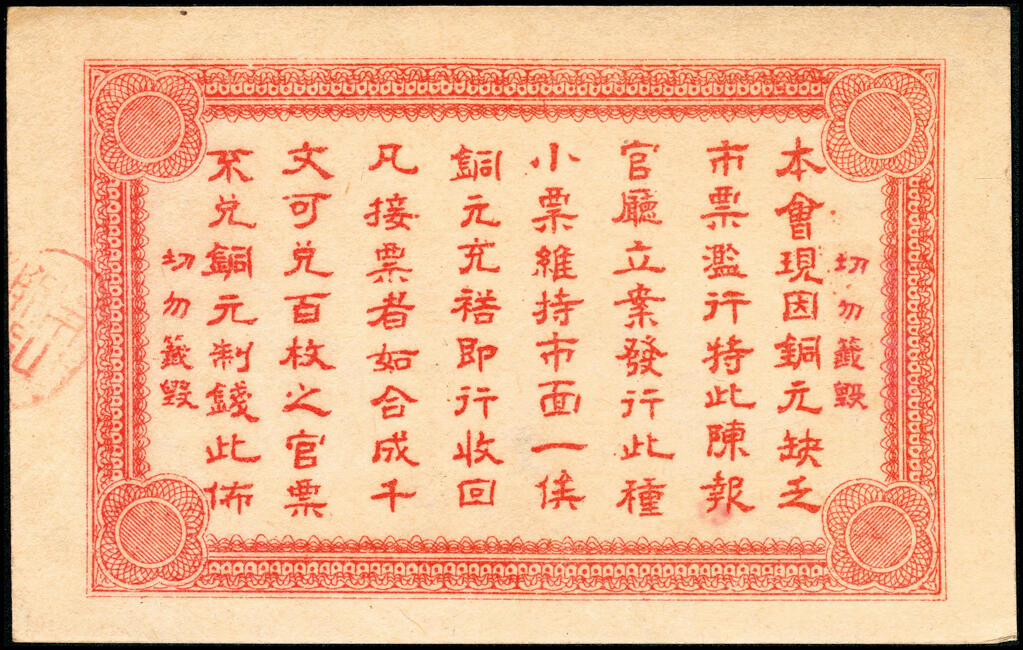 切勿籤毀
本會現因銅元缺乏
市票濫行特此陳報
官廳立案發行此種
小票維持市面一俟
銅元充裕即行收回
凡接票者如合成千
文可兌百枚之官票
不兌銅元制錢此佈
切勿籤毀